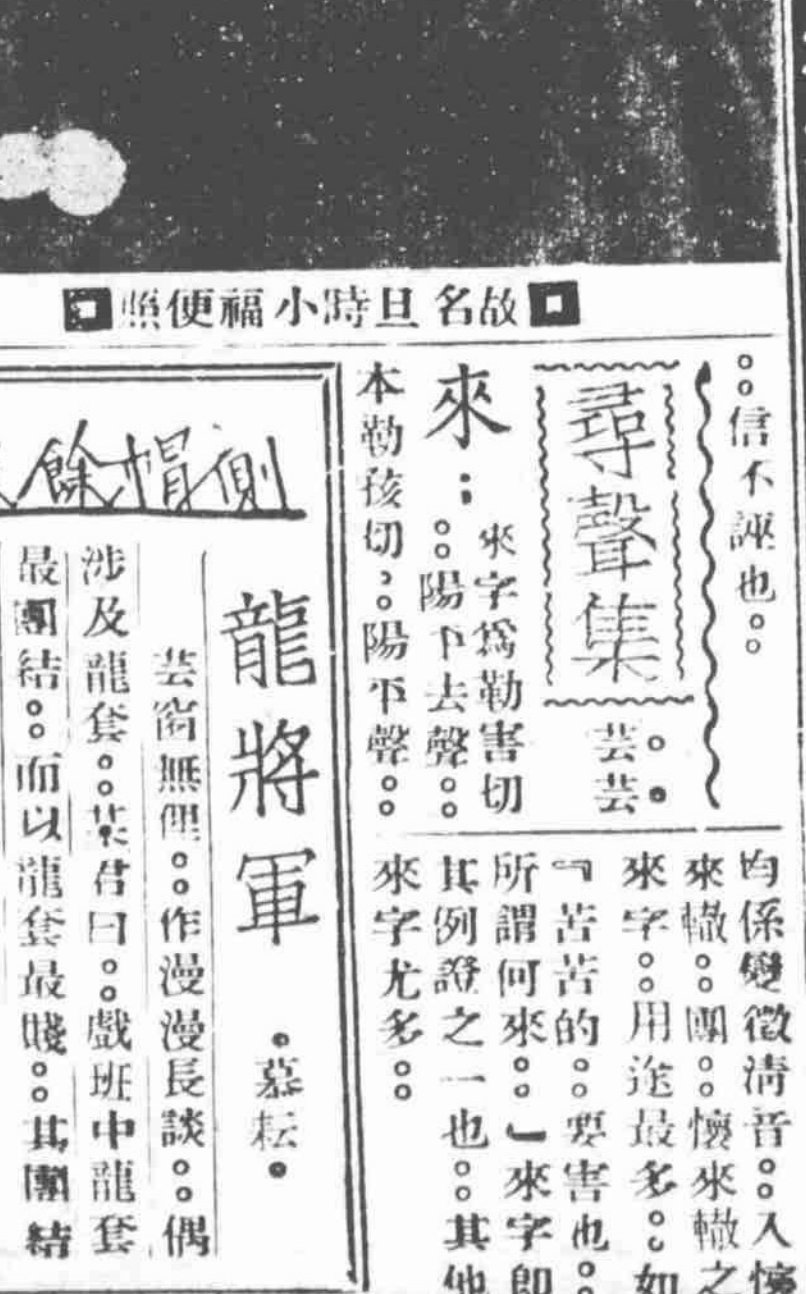 故名旦時小福便照
。。信不誣也。。
尋聲集
。芸芸。
來：來字爲勒害切
。。陽平去聲。。
本勒孩切。。陽平聲。。
均係變徵淸音。。入懷
來轍。。團。。懷來轍之
來字。。用途最多。。如
『苦苦的。。要害也。。
所謂何來。。』來字即
其例證之一也。。其他
來字尤多。。
側帽餘
龍將軍
。慕耘。
芸窗無俚。。作漫漫長談。。偶
涉及龍套。。某君曰。。戲班中龍套
最團結。。而以龍套最賤。。其團結